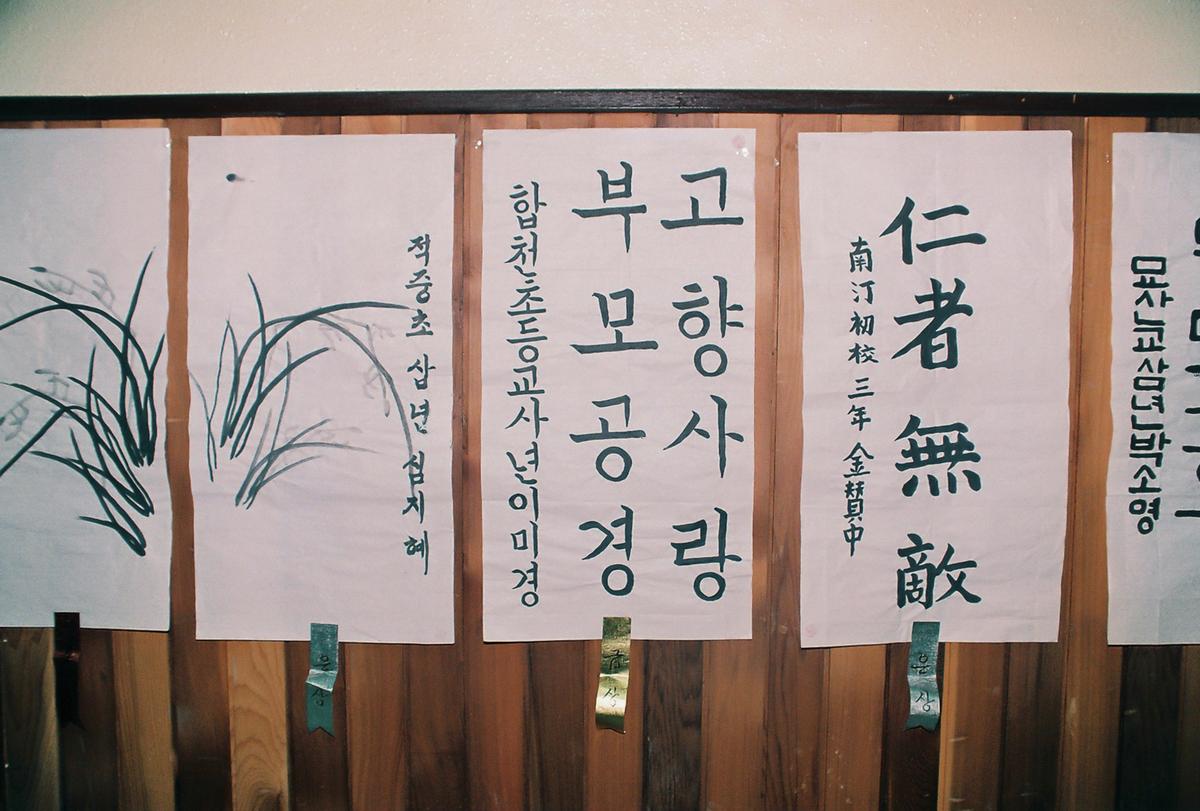 적중초 삼년 심지혜
고향사랑
부모공경
합천초등교사년이미경
仁者無敵
南汀初校三年金賛中
묘산교삼년박소영
은상
금상
은상